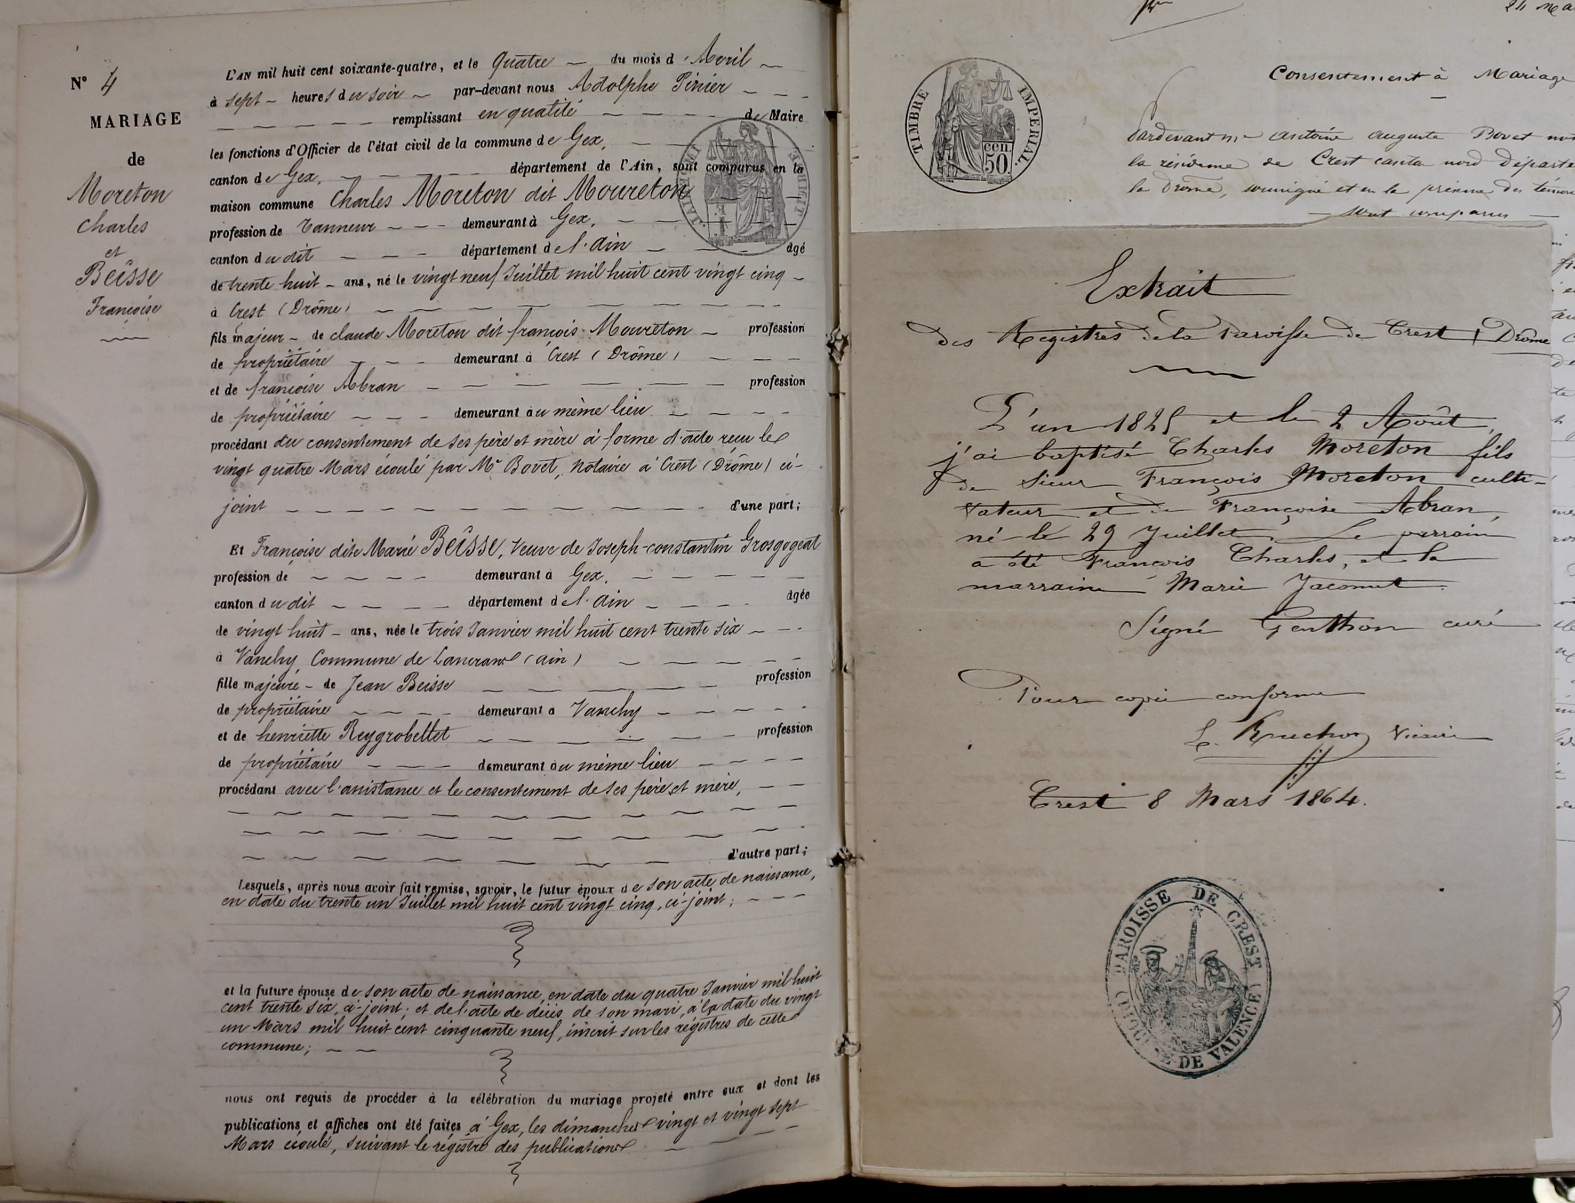 N° 4
MARIAGE
de
Moreton
Charles
et
Beïsse
Françoise
L'AN mil huit cent soixante-quatre, et le Quatre du mois d'Avril
à sept heures du soir par-devant nous Adolphe Pinier
remplissant en qualité de Maire
les fonctions d'Officier de l'état civil de la commune de Gex,
canton de Gex, département de l'Ain, sont comparus en la
maison commune Charles Moreton dit Moureton
profession de Tanneur demeurant à Gex,
canton du dit département de l'Ain âgé
de trente huit ans, né le vingt neuf Juillet mil huit cent vingt cinq
à Crest (Drôme)
fils majeur de claude Moreton dit françois Moureton profession
de propriétaire demeurant à Crest (Drôme)
et de françoise Abran profession
de propriétaire demeurant au même lieu
procédant du consentement de ses père et mère à forme d'acte reçu le
vingt quatre Mars écoulé par Mr Bovet, notaire à Crest (Drôme) ci-
joint d'une part;
Et Françoise dite Marie Beïsse, Veuve de Joseph-constantin Grosgogeat
profession de demeurant à Gex,
canton du dit département de l'Ain âgée
de vingt huit ans, née le trois Janvier mil huit cent trente six
à Vanchy, Commune de Lancrans (Ain)
fille majeure de Jean Beisse profession
de propriétaire demeurant à Vanchy
et de henriette Reygrobellet profession
de propriétaire demeurant au même lieu
procédant avec l'assistance et le consentement de ses père et mère,
d'autre part;
Lesquels, après nous avoir fait remise, savoir, le futur époux de son acte de naissance,
en date du trente un Juillet mil huit cent vingt cinq, ci-joint;
et la future épouse de son acte de naissance, en date du quatre Janvier mil huit
cent trente six, ci-joint; et de l'acte de décès de son mari, à la date du vingt
un Mars mil huit cent cinquante neuf, inscrit sur les régistres de cette
commune;
nous ont requis de procéder à la célébration du mariage projeté entre eux et dont les
publications et affiches ont été faites à Gex, les dimanches vingt et vingt sept
Mars écoulé, suivant le régistre des publications
TIMBRE IMPÉRIAL
50 cen
24 Ma
Consentement à Mariage
Pardevant Me Antoine Auguste Bovet not
la résidence de Crest canton nord Départe
la Drôme, soussigné et en la présence des témoins
sont comparus
Extrait
des Registres de la Paroisse de Crest (Drôme
L'an 1825 et le 2 Août,
j'ai baptisé Charles Moreton fils
de Sieur François Moreton culti-
vateur et de Françoise Abran,
né le 29 Juillet. Le parrain
a été François Charles, et la
marraine Marie Jacomet.
Signé Genthon curé
Pour copie conforme
L. Ruchon Vicaire
Crest 8 Mars 1864.
PAROISSE DE CREST
(DIOCÈSE DE VALENCE)